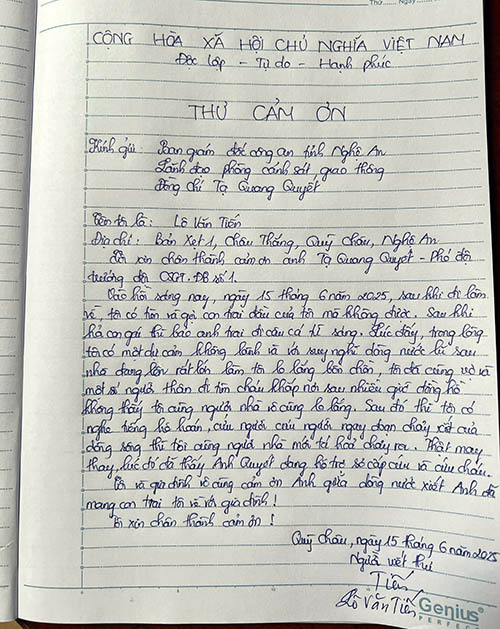 Thứ ........ Ngày
CỘNG HÒA XÃ HỘI CHỦ NGHĨA VIỆT NAM
Độc lập - Tự do - Hạnh phúc
THƯ CẢM ƠN
Kính gửi: Ban giám đốc công an tỉnh Nghệ An
Lãnh đạo phòng cảnh sát giao thông
Đồng chí Tạ Quang Quyết
Tên tôi là: Lô Văn Tiến
Địa chỉ: Bản Xẹt 1, Châu Thắng, Quỳ Châu, Nghệ An
Tôi xin chân thành cảm ơn anh Tạ Quang Quyết - Phó đội
trưởng đội CSGT. ĐB số 1.
Vào hồi sáng nay, ngày 15 tháng 6 năm 2025, sau khi đi làm
về, tôi có tìm và gọi con trai đầu của tôi mà không được. Sau khi
hỏi con gái thì bảo anh trai đi câu cá từ sáng. Lúc đấy, trong lòng
tôi có một dự cảm không lành và với suy nghĩ dòng nước lũ sau
nhà đang lớn rất lớn làm tôi lo lắng bồn chồn, tôi đã cùng vợ và
một số người thân đi tìm cháu khắp nơi sau nhiều giờ đồng hồ
không thấy tôi cùng người nhà vô cùng lo lắng. Sau đó thì tôi có
nghe tiếng hô hoán, cứu người cứu người ngay đoạn chảy xiết của
dòng sông thì tôi cùng người nhà mới tá hoả chạy ra. Thật may
thay, lúc đó đã thấy Anh Quyết đang hỗ trợ sơ cấp cứu và cứu cháu.
Tôi và gia đình vô cùng cảm ơn Anh giữa dòng nước xiết Anh đã
mang con trai tôi về với gia đình!
Tôi xin chân thành cảm ơn!
Quỳ Châu, ngày 15 tháng 6 năm 2025
Người viết thư
Tiến
Lô Văn Tiến
Genius®
PERFEC